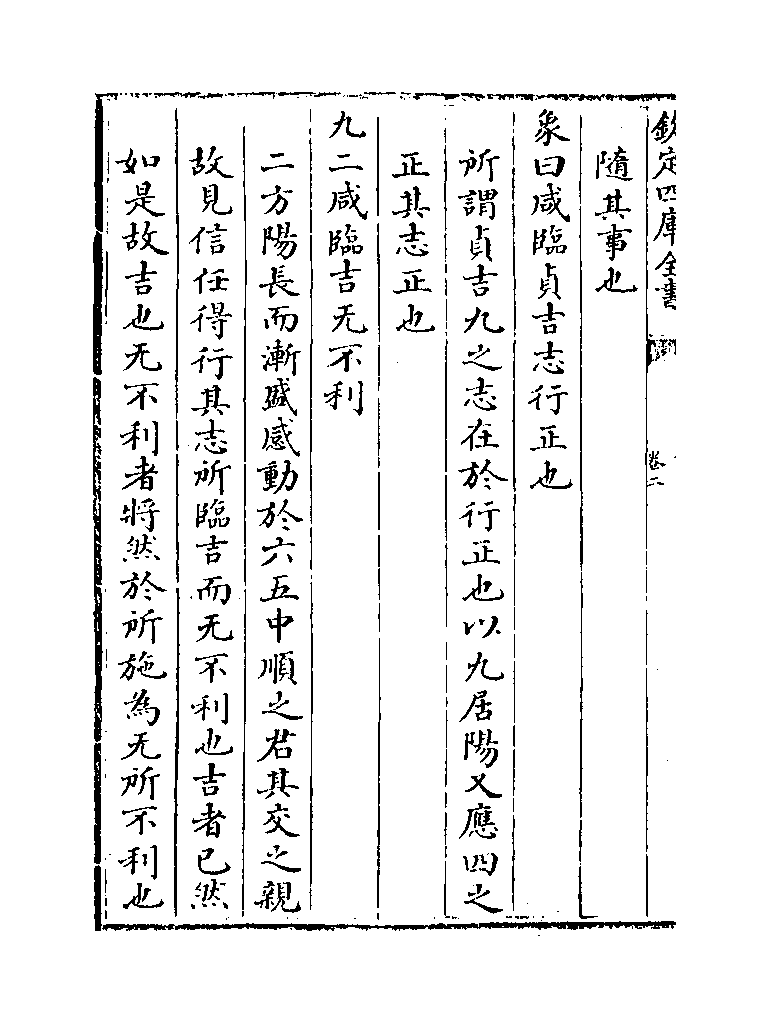 欽定四庫全書
卷二
隨其事也
象曰咸臨貞吉志行正也
所謂貞吉九之志在於行正也以九居陽又應四之
正其志正也
九二咸臨吉无不利
二方陽長而漸盛感動於六五中順之君其交之親
故見信任得行其志所臨吉而无不利也吉者已然
如是故吉也无不利者將然於所施為无所不利也